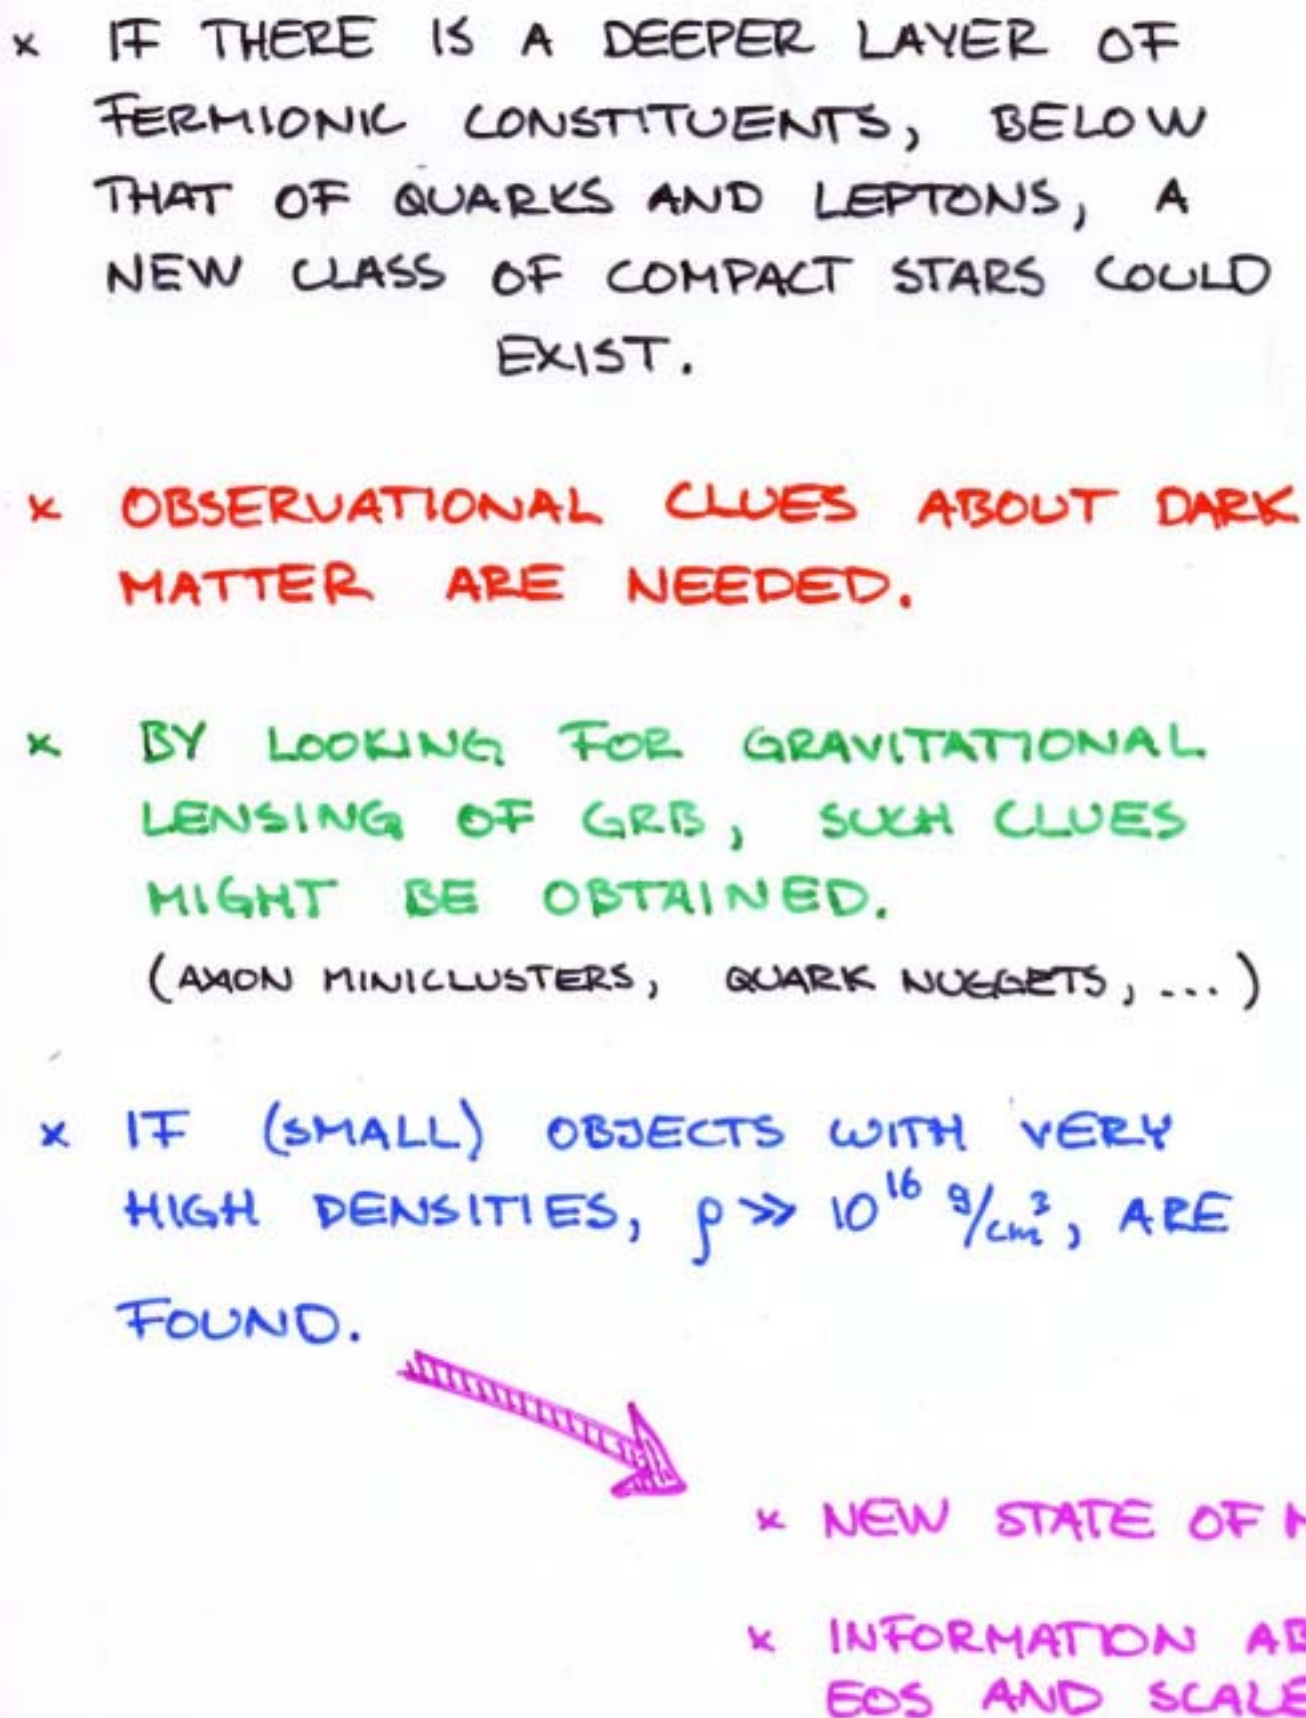 x IF THERE IS A DEEPER LAYER OF
FERMIONIC CONSTITUENTS, BELOW
THAT OF QUARKS AND LEPTONS, A
NEW CLASS OF COMPACT STARS COULD
EXIST.
x OBSERVATIONAL CLUES ABOUT DARK
MATTER ARE NEEDED.
x BY LOOKING FOR GRAVITATIONAL
LENSING OF GRB, SUCH CLUES
MIGHT BE OBTAINED.
(AXION MINICLUSTERS, QUARK NUGGETS, ...)
x IF (SMALL) OBJECTS WITH VERY
HIGH DENSITIES, ρ >> 10¹⁶ g/cm³, ARE
FOUND.
x NEW STATE OF
x INFORMATION AB
EOS AND SCALE